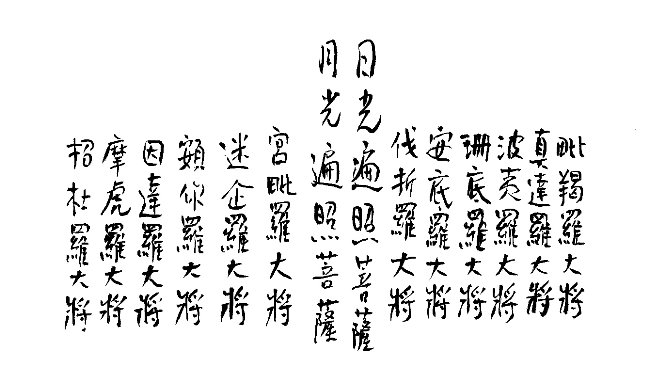 毗羯羅大將
真達羅大將
波夷羅大將
珊底羅大將
安底羅大將
伐折羅大將
日光遍照菩薩
月光遍照菩薩
宮毗羅大將
迷企羅大將
頞你羅大將
因達羅大將
摩虎羅大將
招杜羅大將